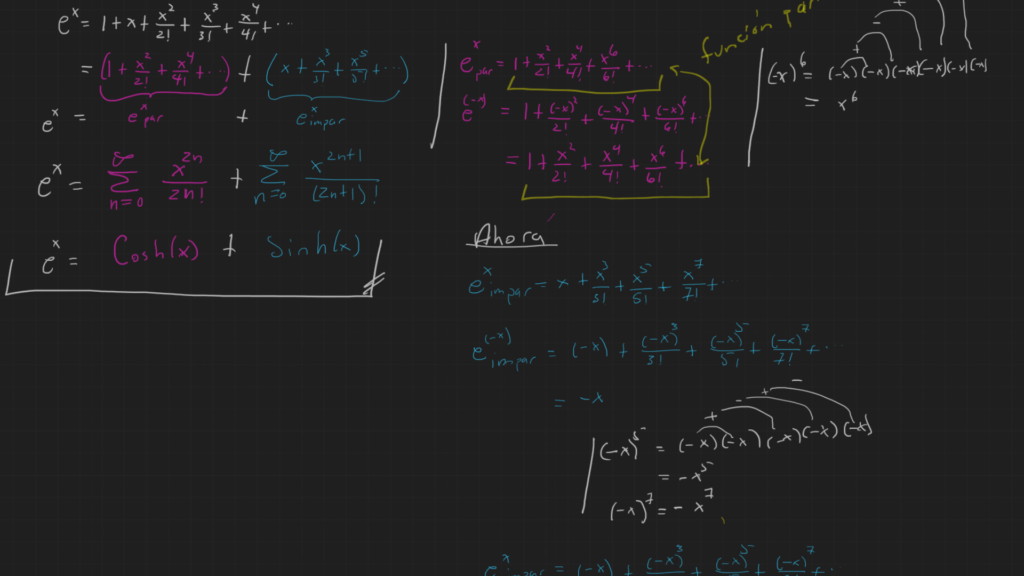 e^x = 1 + x + x²/2! + x³/3! + x⁴/4! + ...
= (1 + x²/2! + x⁴/4! + ...) + (x + x³/3! + x⁵/5! + ...)
e^x = e^x par + e^x impar
e^x = ∞ Σ n=0 x^2n/2n! + ∞ Σ n=0 x^2n+1/(2n+1)!
e^x = Cosh(x) + Sinh(x)
función par
e^x par = 1 + x²/2! + x⁴/4! + x⁶/6! + ...
e^(-x) = 1 + (-x)²/2! + (-x)⁴/4! + (-x)⁶/6! + ..
= 1 + x²/2! + x⁴/4! + x⁶/6! + ...
+
-
+
(-x)⁶ = (-x)(-x)(-x)(-x)(-x)(-x)
= x⁶
Ahora
e^x impar = x + x³/3! + x⁵/5! + x⁷/7! + ...
e^(-x) impar = (-x) + (-x)³/3! + (-x)⁵/5! + (-x)⁷/7! + ...
= -x
-
+
-
+
(-x)⁵ = (-x)(-x)(-x)(-x)(-x)
= -x⁵
(-x)⁷ = -x⁷
e^x impar = (-x) + (-x)³/3! + (-x)⁵/5! + (-x)⁷/7! + ...